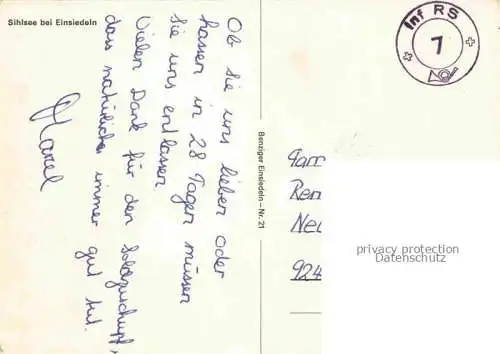 Sihlsee bei Einsiedeln
Ob Sie uns lieben oder
hassen in 28 Tagen müssen
Sie uns entlassen
Vielen Dank für den Soldzuschupf,
dass natürlich immer gut tut.
Benziger Einsiedeln – Nr. 21
Inf RS
7
Fam
Ren
Neu
924
privacy protection
Datenschutz